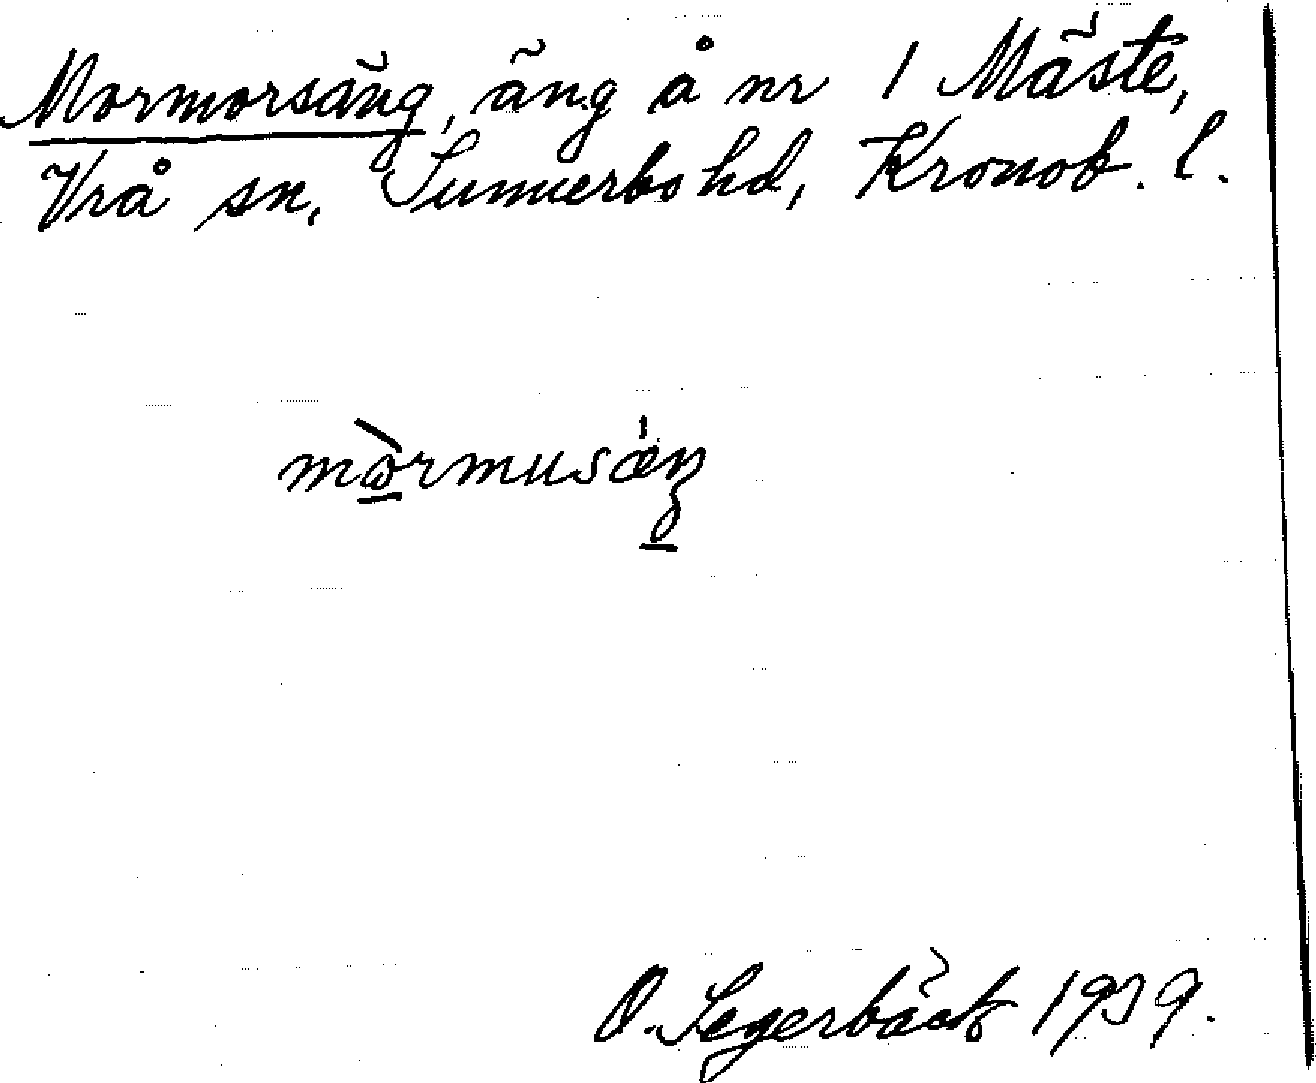 Mormorsäng, äng å nr 1 Mäste,
Vrå sn, Sunnerbo hd, Kronob. l.
mòrmusæŋ
O. Segerbäck 1939.